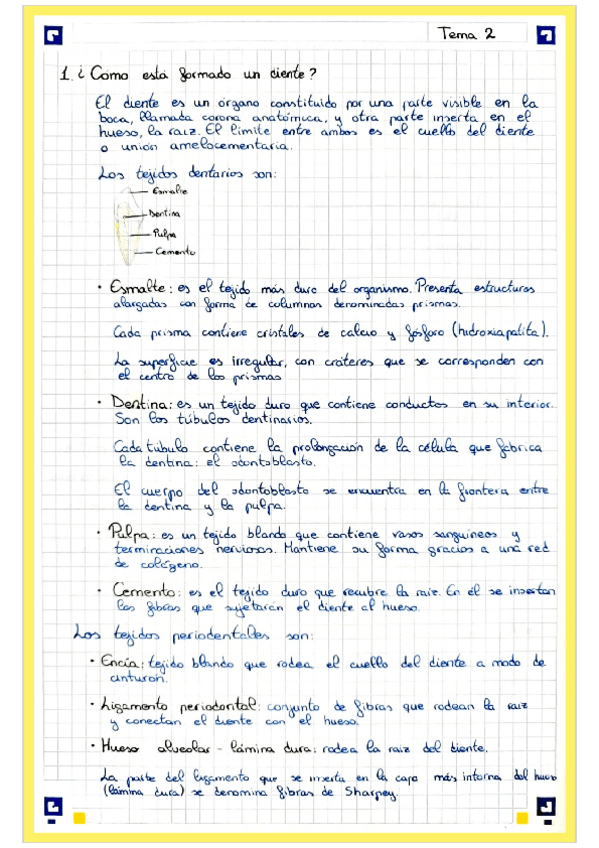 Tema 2
1. ¿Como está formado un diente?
El diente es un órgano constituido por una parte visible en la
boca, llamada corona anatómica, y otra parte inserta en el
hueso, la raiz. El límite entre ambos es el cuello del diente
o unión amelocementaria.
Los tejidos dentarios son:
Esmalte
Dentina
Pulpa
Cemento
• Esmalte: es el tejido más duro del organismo. Presenta estructuras
alargadas con forma de columnas denominadas prismas.
Cada prisma contiene cristales de calcio y fósforo (hidroxiapatita).
La superficie es irregular, con cráteres que se corresponden con
el centro de los prismas
• Dentina: es un tejido duro que contiene conductos en su interior.
Son los túbulos dentinarios.
Cada túbulo contiene la prolongación de la célula que fabrica
la dentina: el odontoblasto.
El cuerpo del odontoblasto se encuentra en la frontera entre
la dentina y la pulpa.
• Pulpa: es un tejido blando que contiene vasos sanguíneos y
terminaciones nerviosas. Mantiene su forma gracias a una red
de colágeno.
• Cemento: es el tejido duro que recubre la raiz. En él se insertan
las fibras que sujetarán el diente al hueso.
Los tejidos periodentales son:
• Encía: tejido blando que rodea el cuello del diente a modo de
cinturón.
• Ligamento periodontal: conjunto de fibras que rodean la raiz
y conectan el diente con el hueso.
• Hueso alveolar - lámina dura: rodea la raiz del diente.
La parte del ligamento que se inserta en la capa más interna del hueso
(lámina dura) se denomina fibras de Sharpey.